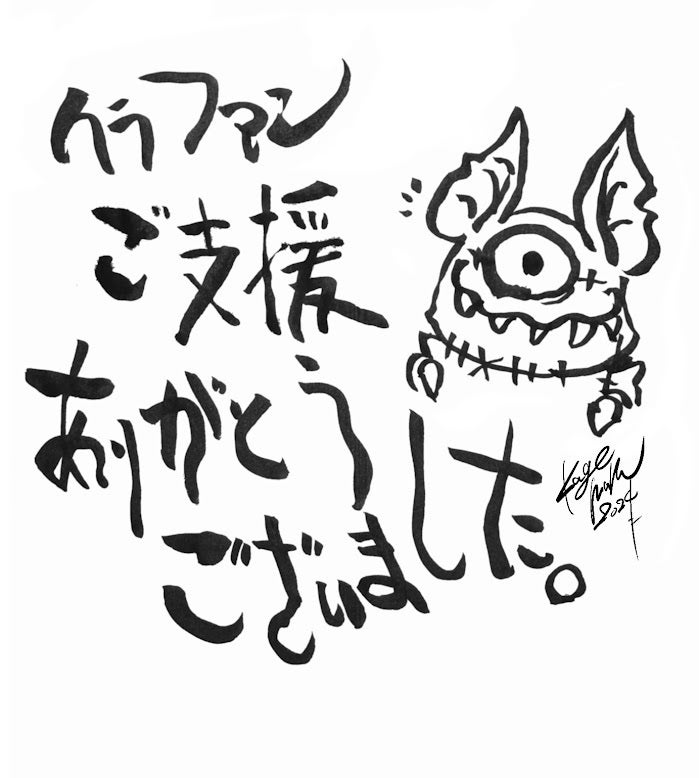 クラファン
ご支援
ありがとう
ございました。
2024